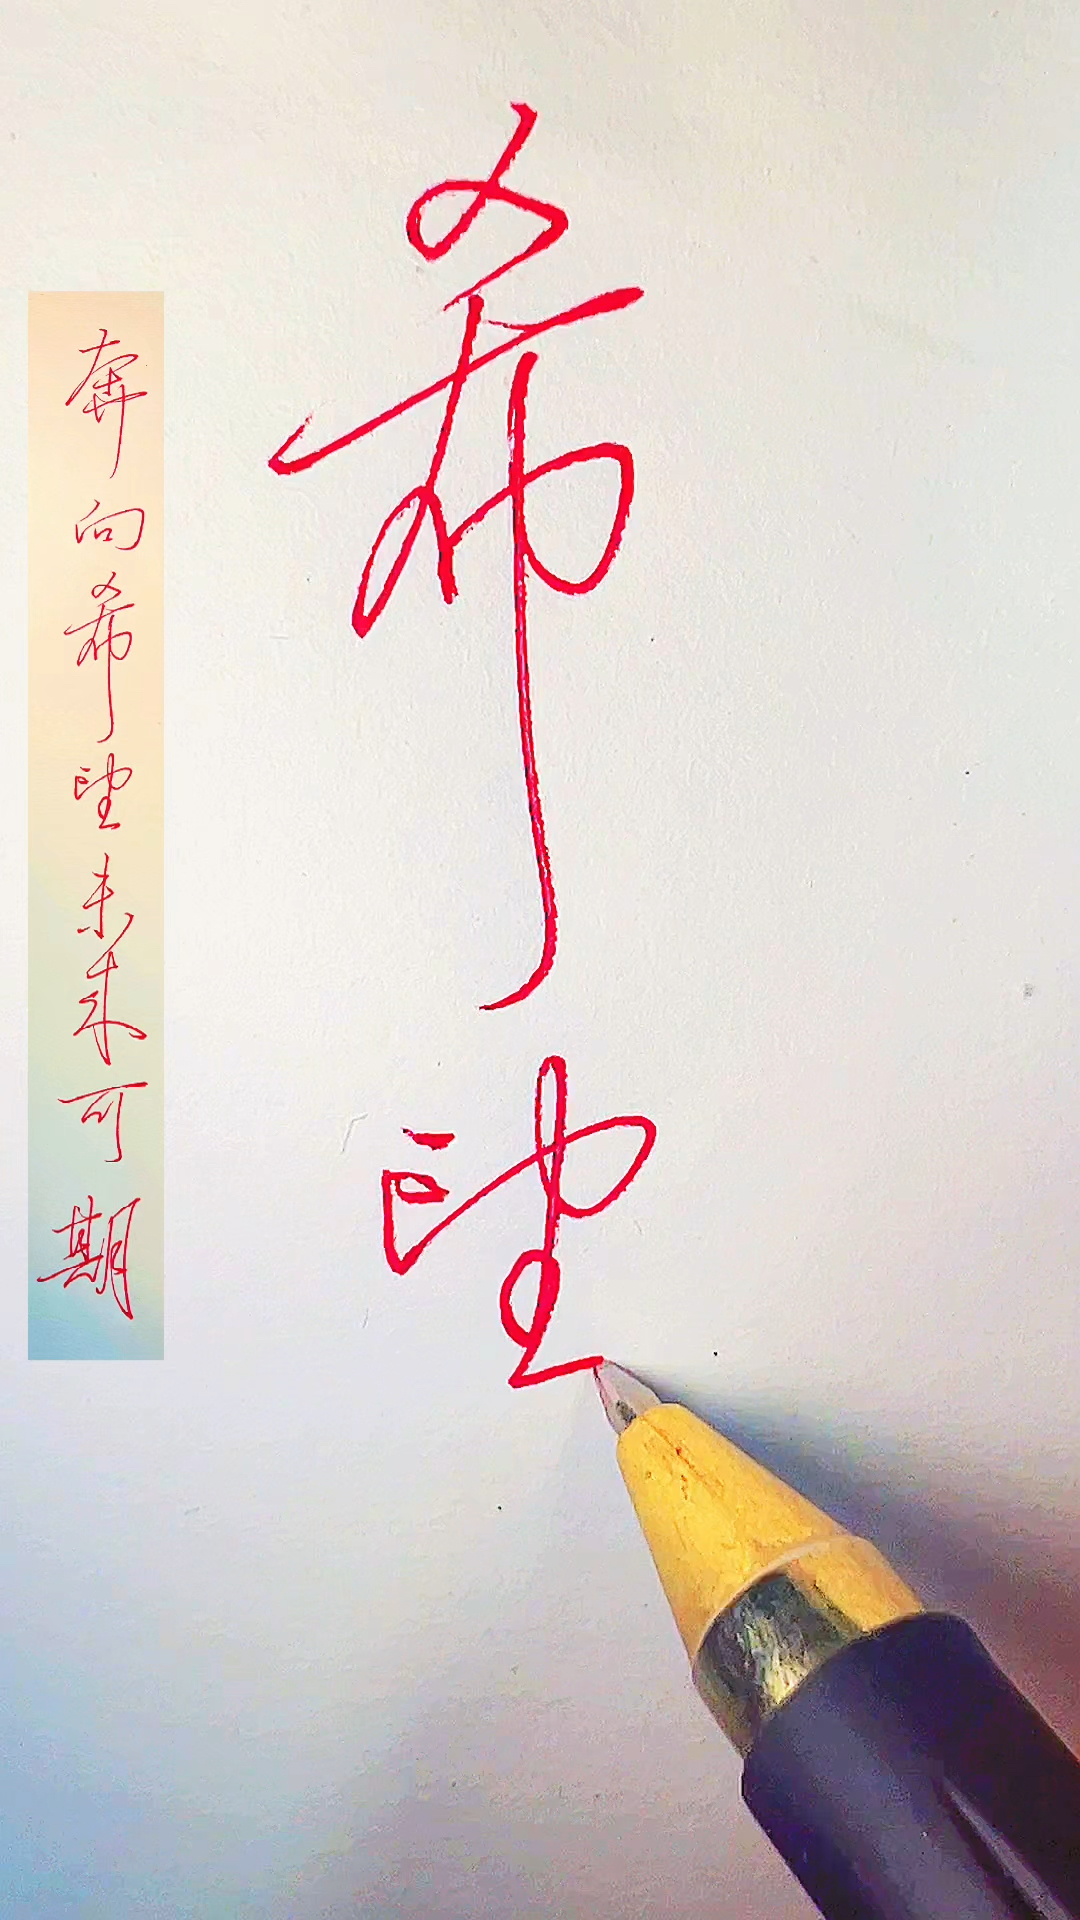 希望
奔向希望未来可期